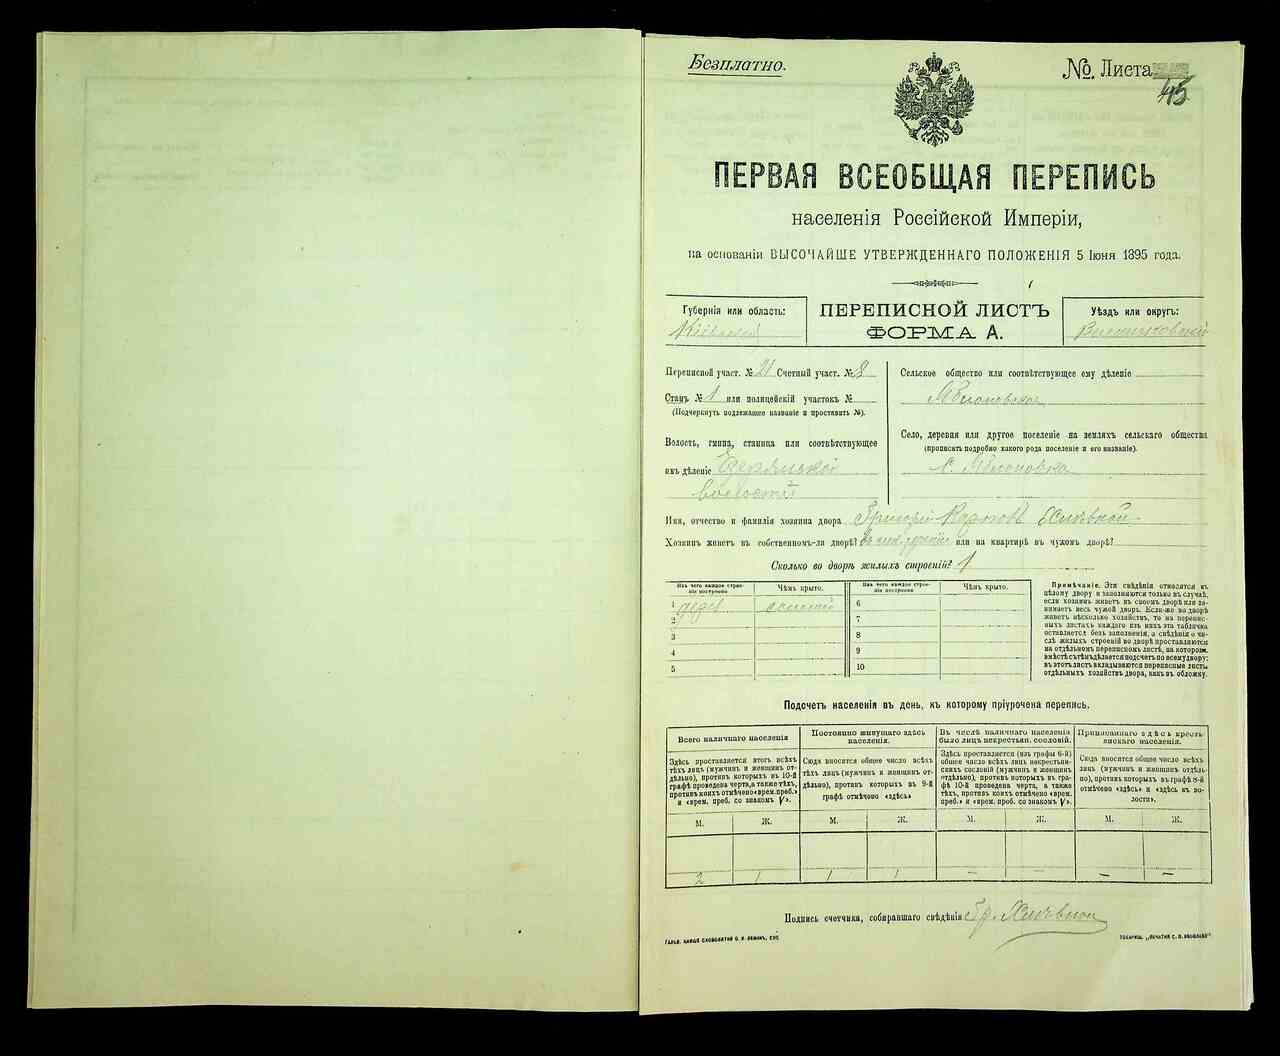 Безплатно.
№ Листа
45
ПЕРВАЯ ВСЕОБЩАЯ ПЕРЕПИСЬ
населенія Россійской Имперіи,
на основаніи ВЫСОЧАЙШЕ УТВЕРЖДЕННАГО ПОЛОЖЕНІЯ 5 Іюня 1895 года.
Губернія или область:
Кіевская
ПЕРЕПИСНОЙ ЛИСТЪ
ФОРМА А.
Уѣздъ или округъ:
Переписной участ. № 21 Счетный участ. № 8
Станъ № 1 или полицейскій участокъ №
(Подчеркнуть подлежащее названіе и проставить №).
Волость, гмина, станица или соотвѣтствующее
имъ дѣленіе
волости
Сельское общество или соотвѣтствующее ему дѣленіе
Яблоновское
Село, деревня или другое поселеніе на земляхъ сельскаго общества
(прописать подробно какого рода поселеніе и его названіе).
с. Яблоновка
Имя, отчество и фамилія хозяина двора Григорій
Хозяинъ живетъ въ собственномъ-ли дворѣ? или на квартирѣ въ чужомъ дворѣ?
Сколько во дворѣ жилыхъ строеній? 1
Изъ чего каждое строеніе построено
Чѣмъ крыто.
Изъ чего каждое строеніе построено
Чѣмъ крыто.
1
2
3
4
5
6
7
8
9
10
Примѣчаніе. Эти свѣдѣнія относятся къ
цѣлому двору и заполняются только въ случаѣ,
если хозяинъ живетъ въ своемъ дворѣ или занимаетъ
весь чужой дворъ. Если-же во дворѣ
живетъ нѣсколько хозяйствъ, то на переписныхъ
листахъ каждаго изъ нихъ эта табличка
оставляется безъ заполненія, а свѣдѣнія о числѣ
жилыхъ строеній во дворѣ проставляются
на отдѣльномъ переписномъ листѣ, на которомъ
вмѣстѣ съ тѣмъ дѣлается подсчетъ по всему двору:
въ этотъ листъ вкладываются переписные листы
отдѣльныхъ хозяйствъ двора, какъ въ обложку.
Подсчетъ населенія въ день, къ которому пріурочена перепись.
Всего наличнаго населенія
Постоянно живущаго здѣсь населенія.
Въ числѣ наличнаго населенія было лицъ некрестьян. сословій.
Приписаннаго здѣсь крестьянскаго населенія.
Здѣсь проставляется итогъ всѣхъ
тѣхъ лицъ (мужчинъ и женщинъ отдѣльно),
противъ которыхъ въ 10-й
графѣ проведена черта, а также тѣхъ,
противъ коихъ отмѣчено «врем. преб.»
и «врем. преб. со знакомъ V».
Сюда вносится общее число всѣхъ
тѣхъ лицъ (мужчинъ и женщинъ отдѣльно),
противъ которыхъ въ 9-й
графѣ отмѣчено «здѣсь»
Здѣсь проставляется (изъ графы 6-й)
общее число всѣхъ лицъ некрестьянскихъ
сословій (мужчинъ и женщинъ
отдѣльно), противъ которыхъ въ графѣ
10-й проведена черта, а также
тѣхъ, противъ коихъ отмѣчено «врем.
преб.» и «врем. преб. со знакомъ V».
Сюда вносится общее число всѣхъ
лицъ (мужчинъ и женщинъ отдѣльно),
противъ которыхъ въ графѣ 8-й
отмѣчено «здѣсь» и «здѣсь въ волости».
М. Ж. М. Ж. М. Ж. М. Ж.
2 1 1 1 — — — —
Подпись счетчика, собиравшаго свѣдѣнія